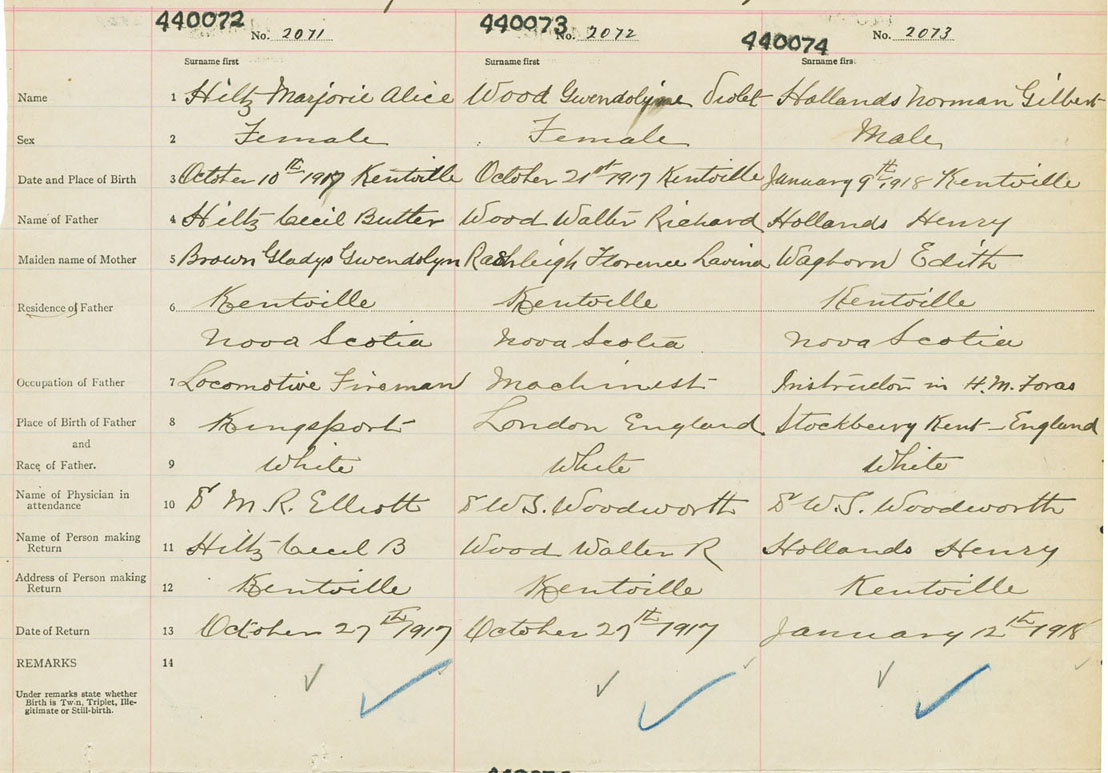 440072 No. 2071 440073 No. 2072 440074 No. 2073
Surname first Surname first Surname firs
Name 1 Hiltz Marjorie Alice Wood Gwendolyne Violet Hollands Norman Gilbert
Sex 2 Female Female Male
Date and Place of Birth 3 October 10th 1917 Kentville October 21st 1917 Kentville January 9th 1918 Kentville
Name of Father 4 Hiltz Cecil Butter Wood Walter Richard Hollands Henry
Maiden name of Mother 5 Brown Gladys Gwendolyn Rashleigh Florence Lavina Waghorn Edith
Residence of Father 6 Kentville Kentville Kentville
Nova Scotia Nova Scotia Nova Scotia
Occupation of Father 7 Locomotive Fireman Machinest Instructor in H.M. Forces
Place of Birth of Father 8 Kingsport London England Stockbury Kent - England
and
Race of Father. 9 White White White
Name of Physician in
attendance 10 Dr M. R. Elliott Dr W. S. Woodworth Dr W. S. Woodworth
Name of Person making
Return 11 Hiltz Cecil B Wood Walter R Hollands Henry
Address of Person making
Return 12 Kentville Kentville Kentville
Date of Return 13 October 27th 1917 October 27th 1917 January 12th 1918
REMARKS 14
Under remarks state whether
Birth is Twin, Triplet, Ille-
gitimate or Still-birth.